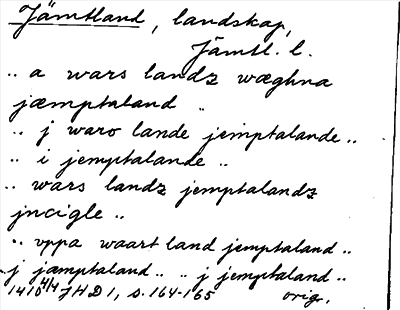 Jämtland, landskap,
Jämtl. l.
.. a wars landz wæghna
jæmptaland ..
.. j waro lande jemptalande ..
.. i jemptalande ..
.. wars landz jemptalandz
jncigle ..
.. vppa waart land jemptaland ..
j jæmptaland .. .. j jemptaland ..
1410 4/4 JHD 1, s. 164-165 orig.